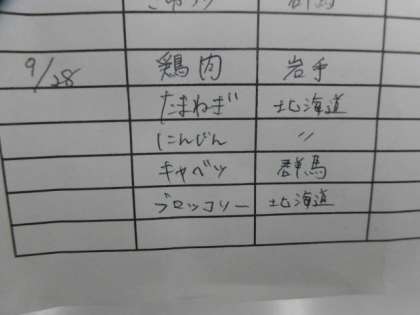 9/28 鶏肉 岩手
たまねぎ 北海道
にんじん 〃
キャベツ 群馬
ブロッコリー 北海道